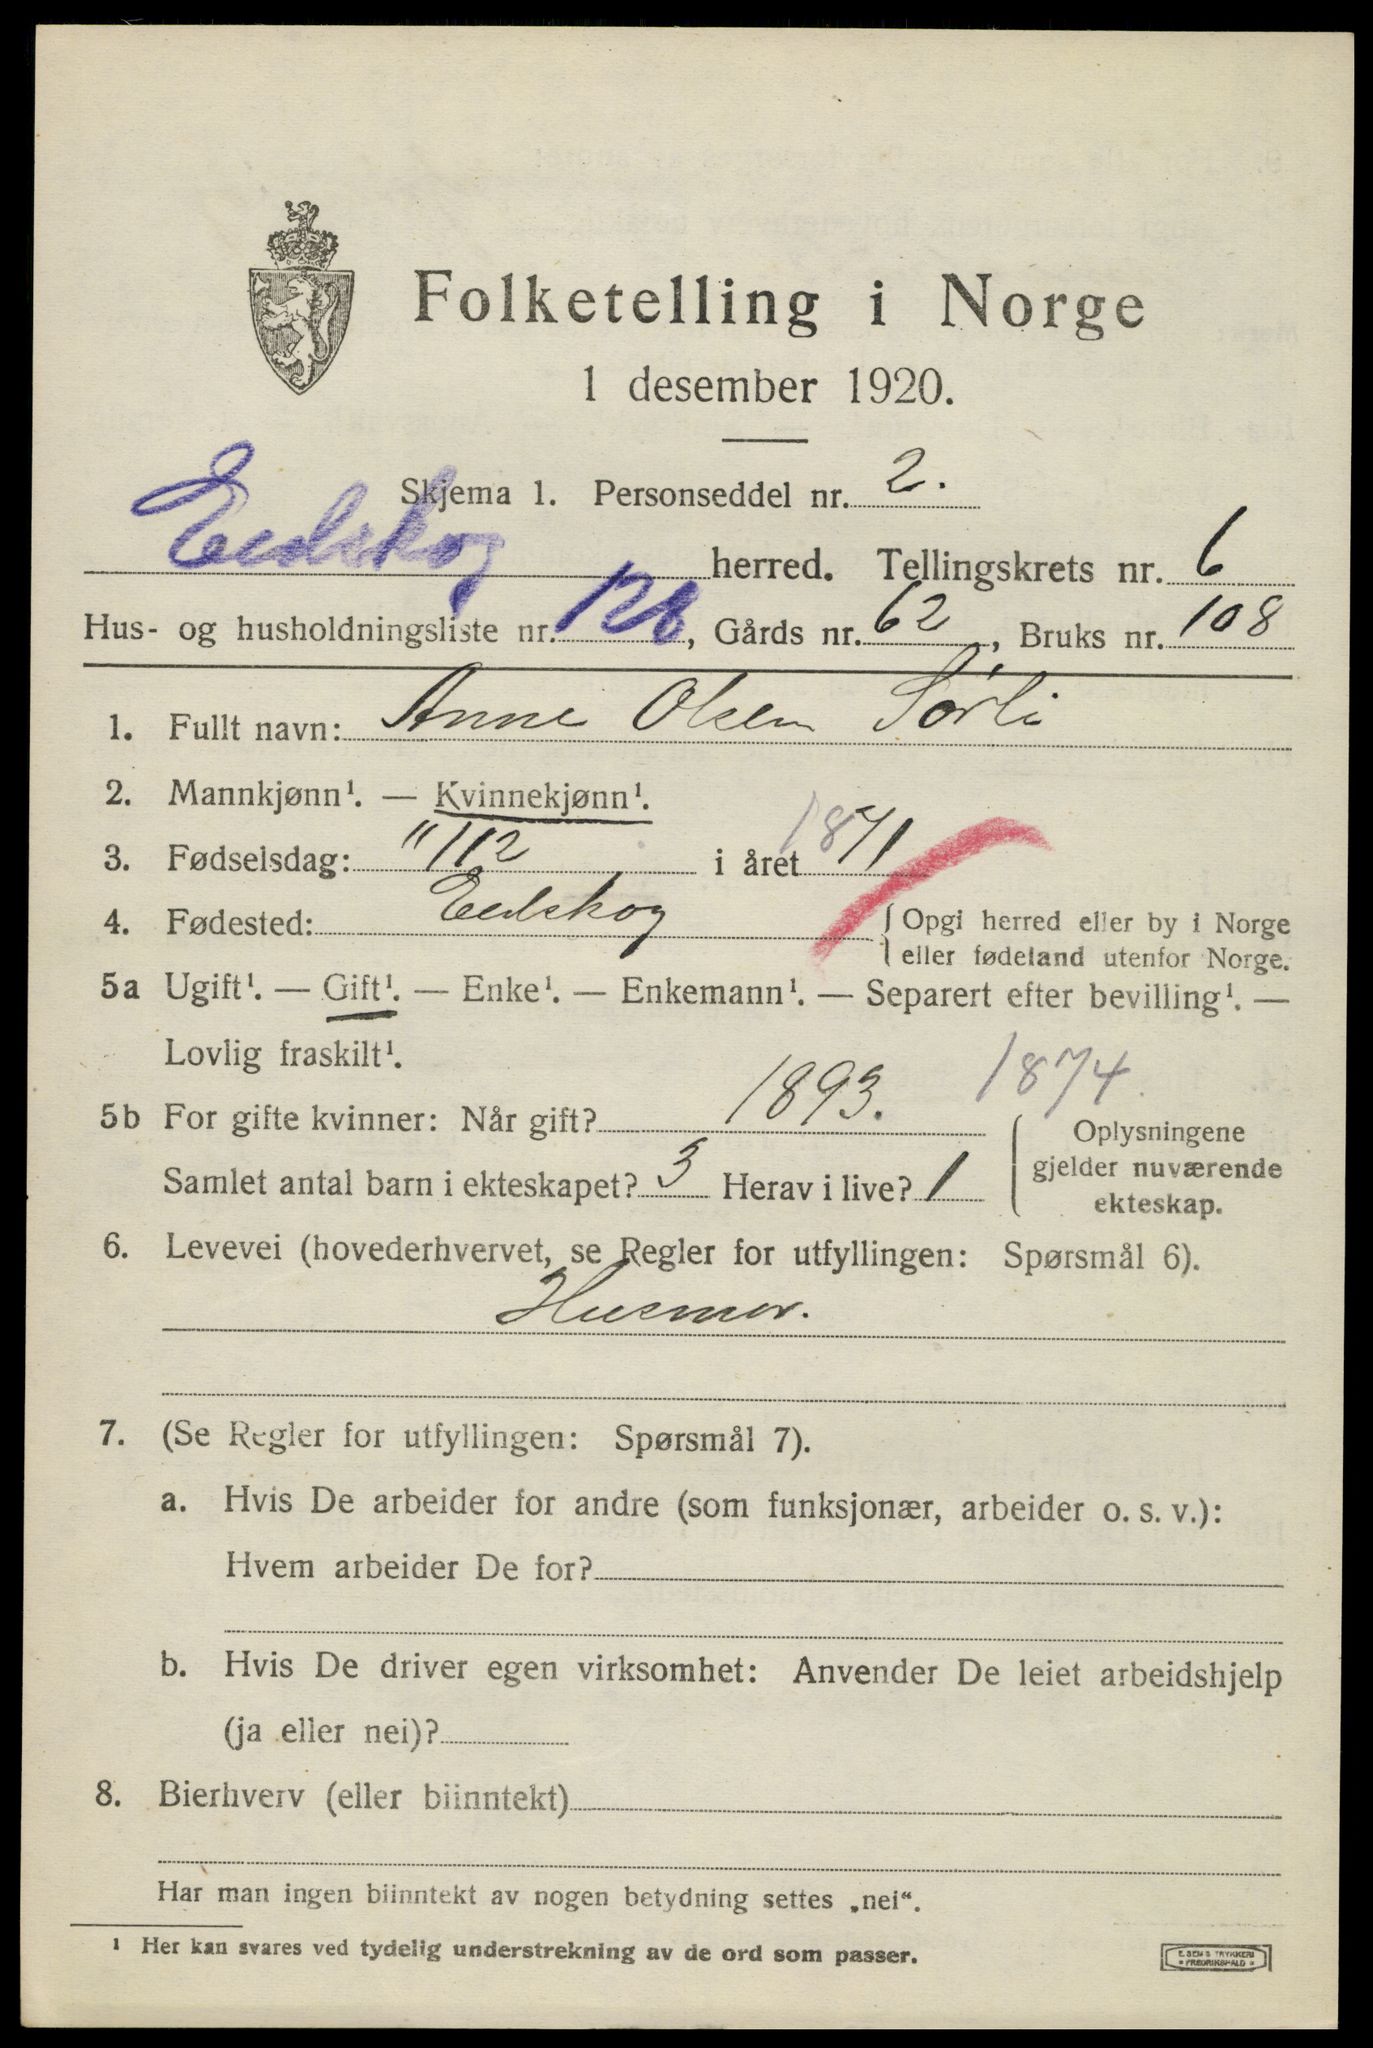 Folketelling i Norge
1 desember 1920.
Skjema 1. Personseddel nr. 2.
Eidskog herred. Tellingskrets nr. 6
Hus- og husholdningsliste nr. 128, Gårds nr. 62, Bruks nr. 108
1. Fullt navn: Anne Olsen Sørli
2. Mannkjønn¹. — Kvinnekjønn¹.
3. Fødselsdag: "/12 i året 1871
4. Fødested: Eidskog { Opgi herred eller by i Norge
eller fødeland utenfor Norge.
5a Ugift¹. — Gift¹. — Enke¹. — Enkemann¹. — Separert efter bevilling¹. —
Lovlig fraskilt¹.
1874
5b For gifte kvinner: Når gift? 1893. Oplysningene
gjelder nuværende
ekteskap.
Samlet antal barn i ekteskapet? 3 Herav i live? 1
6. Levevei (hovederhvervet, se Regler for utfyllingen: Spørsmål 6).
Husmor.
7. (Se Regler for utfyllingen: Spørsmål 7).
a. Hvis De arbeider for andre (som funksjonær, arbeider o. s. v.):
Hvem arbeider De for?
b. Hvis De driver egen virksomhet: Anvender De leiet arbeidshjelp
(ja eller nei)?
8. Bierhverv (eller biinntekt)
Har man ingen biinntekt av nogen betydning settes „nei“.
¹ Her kan svares ved tydelig understrekning av de ord som passer.
E. SEMS TRYKKERI
* FREDRIKSHALD *